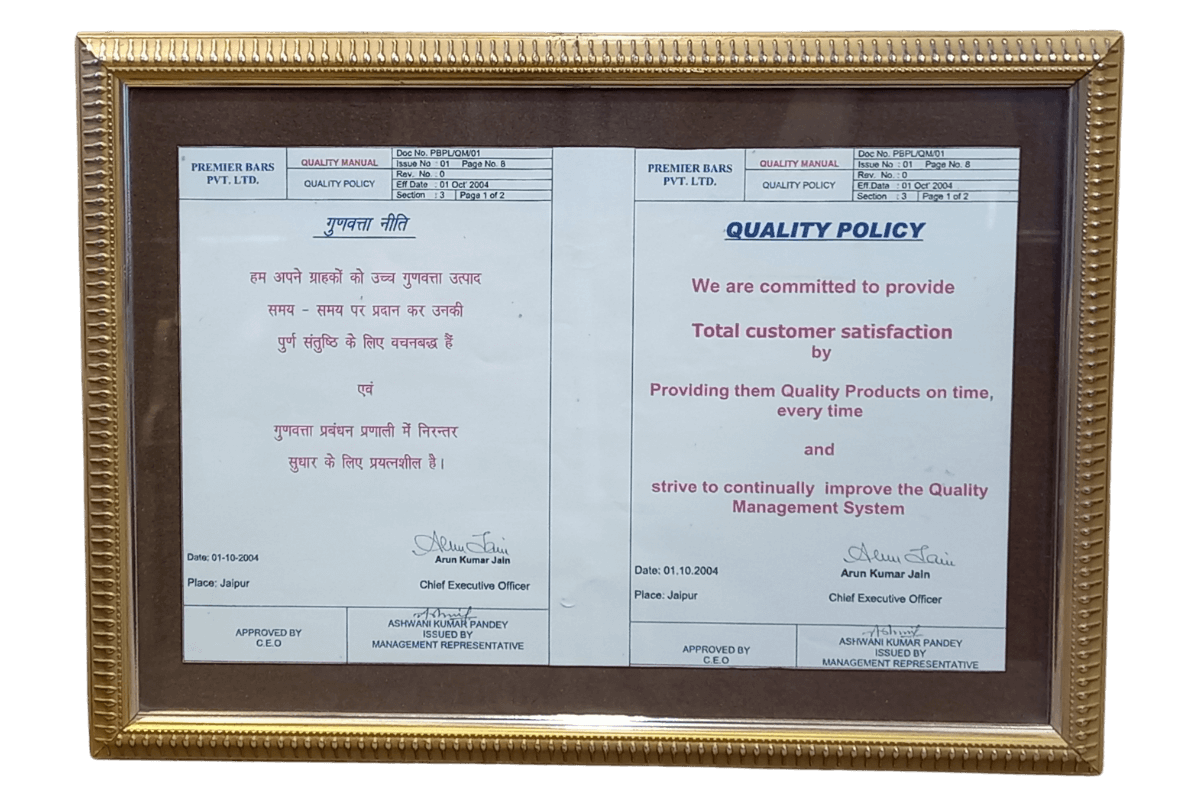 PREMIER BARS
PVT. LTD.
QUALITY MANUAL
QUALITY POLICY
Doc No. PBPL/QM/01
Issue No : 01 Page No. 8
Rev. No. : 0
Eff Date : 01 Oct' 2004
Section : 3 Page 1 of 2
गुणवत्ता नीति
हम अपने ग्राहकों को उच्च गुणवत्ता उत्पाद
समय - समय पर प्रदान कर उनकी
पुर्ण संतुष्ठि के लिए वचनबद्ध हैं
एवं
गुणवत्ता प्रबंधन प्रणाली में निरन्तर
सुधार के लिए प्रयत्नशील है।
Arun Jain
Date: 01-10-2004
Arun Kumar Jain
Place: Jaipur
Chief Executive Officer
APPROVED BY
C.E.O
Ashwni
ASHWANI KUMAR PANDEY
ISSUED BY
MANAGEMENT REPRESENTATIVE
PREMIER BARS
PVT. LTD.
QUALITY MANUAL
QUALITY POLICY
Doc No. PBPL/QM/01
Issue No : 01 Page No. 8
Rev. No. : 0
Eff.Date : 01 Oct' 2004
Section : 3 Page 1 of 2
QUALITY POLICY
We are committed to provide
Total customer satisfaction
by
Providing them Quality Products on time,
every time
and
strive to continually improve the Quality
Management System
Arun Jain
Date: 01.10.2004
Arun Kumar Jain
Place: Jaipur
Chief Executive Officer
APPROVED BY
C.E.O
Ashwni
ASHWANI KUMAR PANDEY
ISSUED BY
MANAGEMENT REPRESENTATIVE